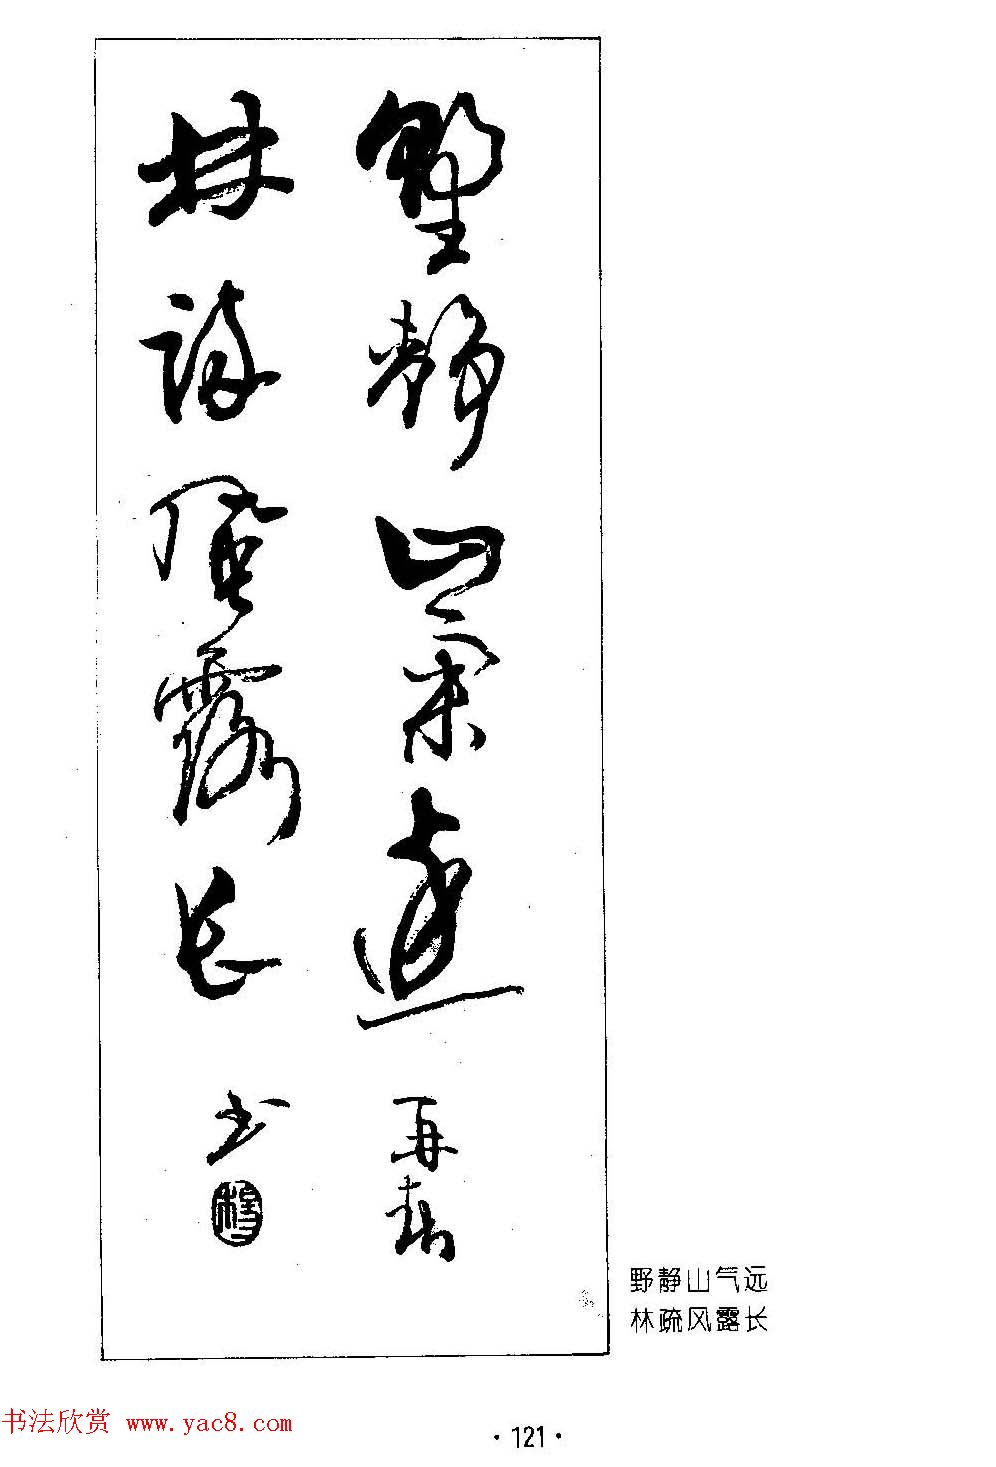 野静山气远
再春
林疏风露长
书
野静山气远
林疏风露长
书法欣赏 www.yac8.com
·121·